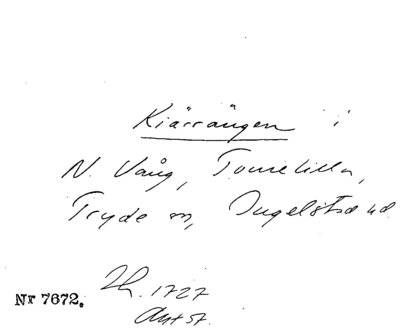 Kiärrängen i
N. Vång, Tomelilla,
Tryde sn, Ingelstad hd
Nr 7672.
1727